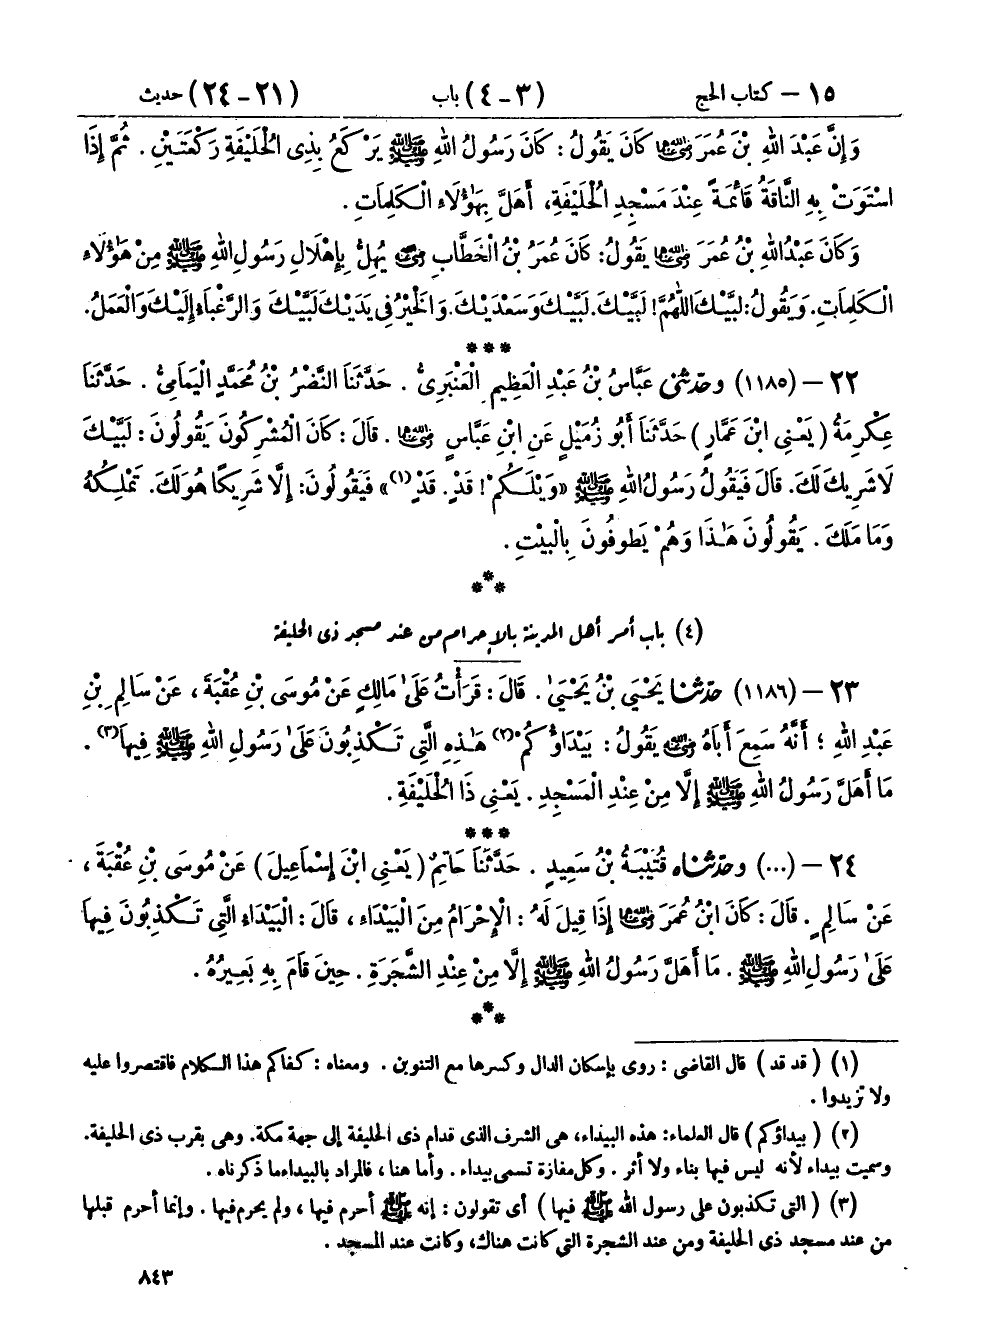 ١٥ – كتاب الحج (٣ – ٤) باب (٢١ – ٢٤) حديث
وَإِنَّ عَبْدَ اللهِ بْنَ عُمَرَ رضي الله عنهما كَانَ يَقُولُ : كَانَ رَسُولُ اللهِ ﷺ يَرْكَعُ بِذِى الْحُلَيْفَةِ رَكْعَتَيْنِ . ثُمَّ إِذَا
اسْتَوَتْ بِهِ النَّاقَةُ قَائِمَةً عِنْدَ مَسْجِدِ الْحُلَيْفَةِ، أَهَلَّ بِهَٰؤُلَاءِ الْكَلِمَاتِ .
وَكَانَ عَبْدُ اللهِ بْنُ عُمَرَ رضي الله عنهما يَقُولُ: كَانَ عُمَرُ بْنُ الْخَطَّابِ رضي الله عنه يُهِلُّ بِإِهْلَالِ رَسُولِ اللهِ ﷺ مِنْ هَٰؤُلَاءِ
الْكَلِمَاتِ. وَيَقُولُ: لَبَّيْكَ اللّٰهُمَّ! لَبَّيْكَ. لَبَّيْكَ وَسَعْدَيْكَ. وَالْخَيْرُ فِى يَدَيْكَ لَبَّيْكَ وَالرَّغْبَاءُ إِلَيْكَ وَالْعَمَلُ.
***
٢٢ – (١١٨٥) وحدّثنى عَبَّاسُ بْنُ عَبْدِ الْعَظِيمِ الْعَنْبَرِىُّ . حَدَّثَنَا النَّضْرُ بْنُ مُحَمَّدٍ الْيَمَامِىُّ . حَدَّثَنَا
عِكْرِمَةُ (يَعْنِى ابْنَ عَمَّارٍ) حَدَّثَنَا أَبُو زُمَيْلٍ عَنِ ابْنِ عَبَّاسٍ رضي الله عنهما . قَالَ : كَانَ الْمُشْرِكُونَ يَقُولُونَ : لَبَّيْكَ
لَا شَرِيكَ لَكَ. قَالَ فَيَقُولُ رَسُولُ اللهِ ﷺ «وَيْلَكُمْ! قَدْ. قَدْ(١)» فَيَقُولُونَ: إِلَّا شَرِيكًا هُوَ لَكَ. تَمْلِكُهُ
وَمَا مَلَكَ . يَقُولُونَ هَٰذَا وَهُمْ يَطُوفُونَ بِالْبَيْتِ .
***
(٤) باب أمر أهل المدينة بالإحرام من عند مسجد ذى الحليفة
٢٣ – (١١٨٦) حدّثنا يَحْيَى بْنُ يَحْيَىٰ . قَالَ : قَرَأْتُ عَلَىٰ مَالِكٍ عَنْ مُوسَى بْنِ عُقْبَةَ ، عَنْ سَالِمِ بْنِ
عَبْدِ اللهِ ؛ أَنَّهُ سَمِعَ أَبَاهُ رضي الله عنه يَقُولُ : بَيْدَاؤُكُمْ(٢) هَٰذِهِ الَّتِى تَكْذِبُونَ عَلَىٰ رَسُولِ اللهِ ﷺ فِيهَا(٣) .
مَا أَهَلَّ رَسُولُ اللهِ ﷺ إِلَّا مِنْ عِنْدِ الْمَسْجِدِ . يَعْنِى ذَا الْحُلَيْفَةِ .
***
٢٤ – (...) وحدّثناه قُتَيْبَةُ بْنُ سَعِيدٍ . حَدَّثَنَا حَاتِمٌ (يَعْنِى ابْنَ إِسْمَاعِيلَ) عَنْ مُوسَى بْنِ عُقْبَةَ ،
عَنْ سَالِمٍ . قَالَ : كَانَ ابْنُ عُمَرَ رضي الله عنهما إِذَا قِيلَ لَهُ : الْإِحْرَامُ مِنَ الْبَيْدَاءِ ، قَالَ : الْبَيْدَاءُ الَّتِى تَكْذِبُونَ فِيهَا
عَلَىٰ رَسُولِ اللهِ ﷺ . مَا أَهَلَّ رَسُولُ اللهِ ﷺ إِلَّا مِنْ عِنْدِ الشَّجَرَةِ . حِينَ قَامَ بِهِ بَعِيرُهُ .
***
(١) (قد قد) قال القاضى : روى بإسكان الدال وكسرها مع التنوين . ومعناه : كفاكم هذا الكلام فاقتصروا عليه
ولا تزيدوا .
(٢) (بيداؤكم) قال العلماء: هذه البيداء، هى الشرف الذى قدام ذى الحليفة إلى جهة مكة. وهى بقرب ذى الحليفة.
وسميت بيداء لأنه ليس فيها بناء ولا أثر . وكل مفازة تسمى بيداء . وأما هنا ، فالمراد بالبيداء ما ذكرناه .
(٣) (التى تكذبون على رسول الله ﷺ فيها) أى تقولون : إنه ﷺ أحرم فيها ، ولم يحرم فيها . وإنما أحرم قبلها
من عند مسجد ذى الحليفة ومن عند الشجرة التى كانت هناك، وكانت عند المسجد .
٨٤٣